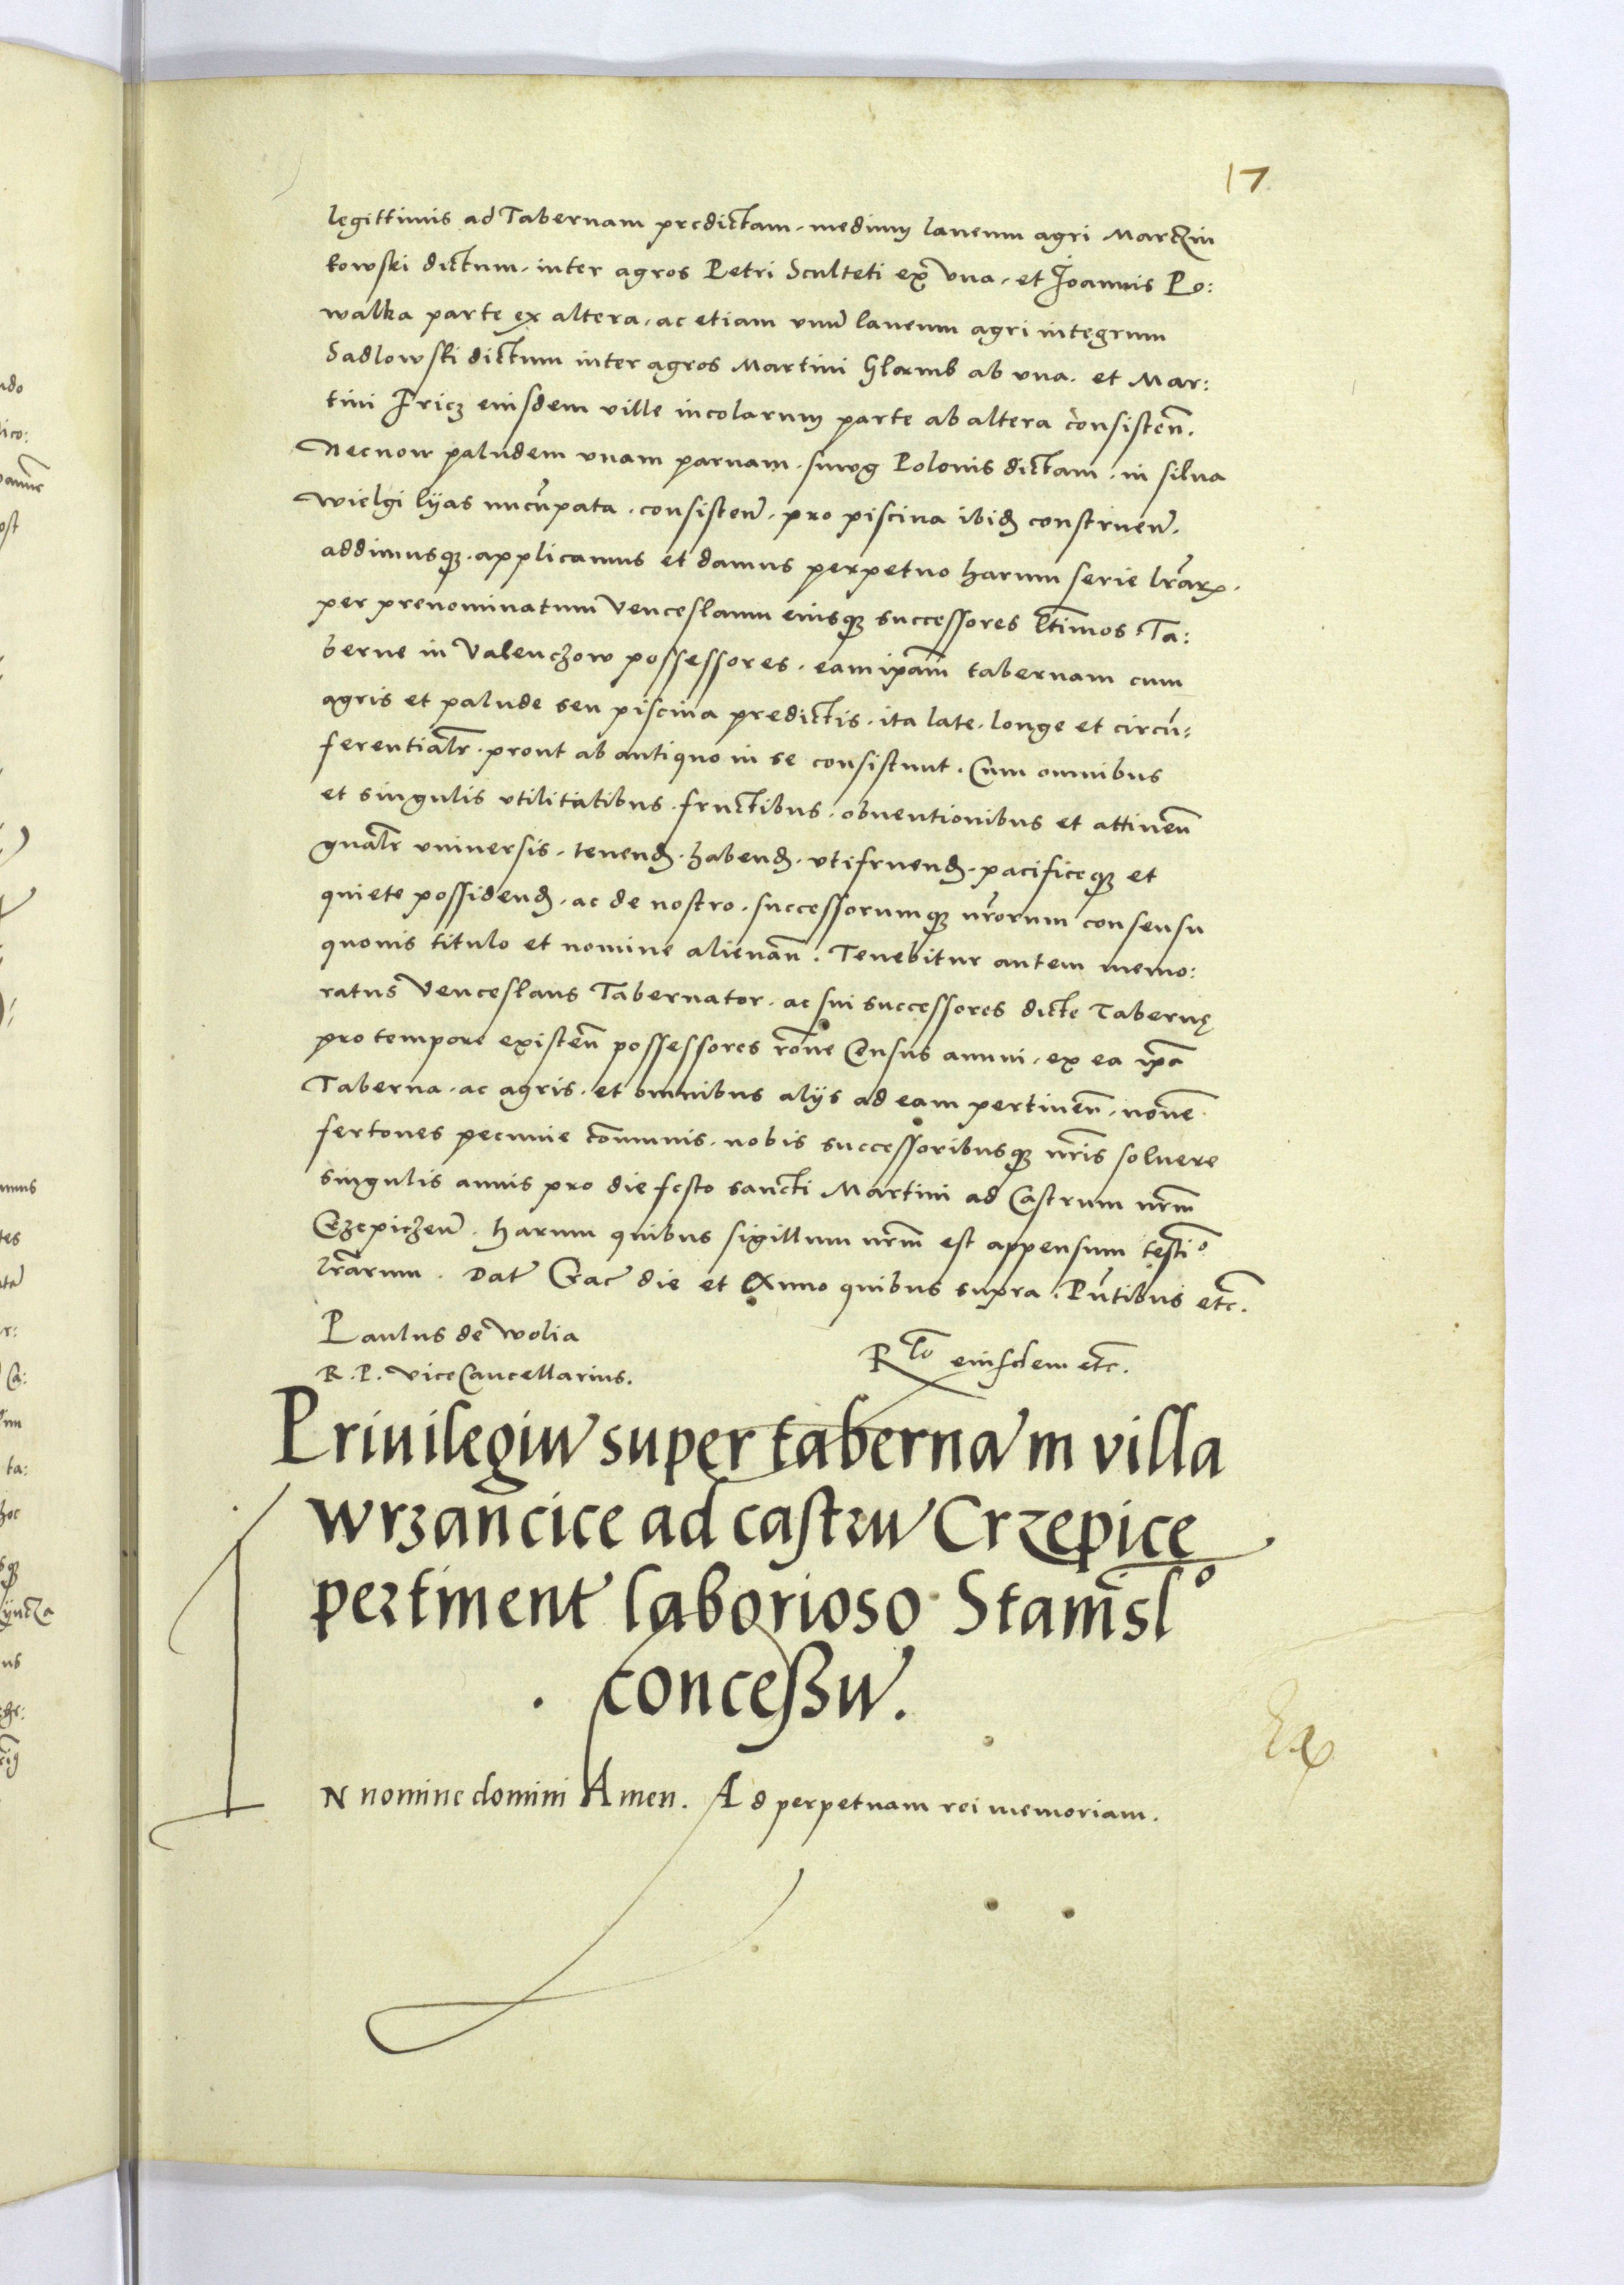 17
legittimis ad Tabernam predictam, medium laneum agri Martzin
kowski dictum, inter agros Petri Sculteti ex vna, et Joannis Po:
walka parte ex altera, ac etiam vnu̅ laneum agri integrum
Sadlowski dictum inter agros Martini ab vna. et Mar:
tini Fricz eiusdem ville incolarum parte ab altera consisten̅.
Necnon paludem vnam paruam, smug Polonis dictam, in silua
wielgi lyas nu̅cupata. consisten̅. pro piscina ibid construen̅.
addimusq3. applicamus et damus perpetuo harum serie lr̅arꝝ.
per prenominatum Venceslaum eiusq3 successores l̅timos Ta:
berne in Valenczow possessores. eam ip̅am tabernam cum
agris et palude seu piscina predictis. ita late. longe et circu̅:
ferential̅r. prout ab antiquo in se consistunt. Cum omnibus
et singulis vtilitatibus. fructibus. obuentionibus et attinen̅
gnal̅r vniuersis. tenend. habend. vtifruend. pacificeq3 et
quiete possidend. ac de nostro. successorumq3 nr̅orum consensu
quouis titulo et nomine alienan̅. Tenebitur autem memo:
ratus Venceslaus Tabernator. ac sui successores dicte Tabernę
pro tempore existen̅ possessores ro̅ne Census annui. ex ea ip̅a
Taberna. ac agris. et omnibus alijs ad eam pertinen̅. nouem
fertones pecunie co̅munis. nobis successoribusq3 nr̅is soluere
singulis annis pro die festo sancti Martini ad Castrum nr̅m
Crzepiczen̅. harum quibus sigillum nr̅m est appensum testi̅o
lr̅arum. Dat̅ Crac̅ die et Anno quibus supra. Pn̅tibus etc̅.
Paulus de Wolia
R. P. ViceCancellarius.
R^to eiusdem etc̅.
Priuilegiu̅ super taberna̅ in villa
wrzancice ad castru̅ Crzepice
pertinent̅ laborioso Stanisl^o
. concessu̅.
IN nomine domini Amen. Ad perpetuam rei memoriam.
Ex